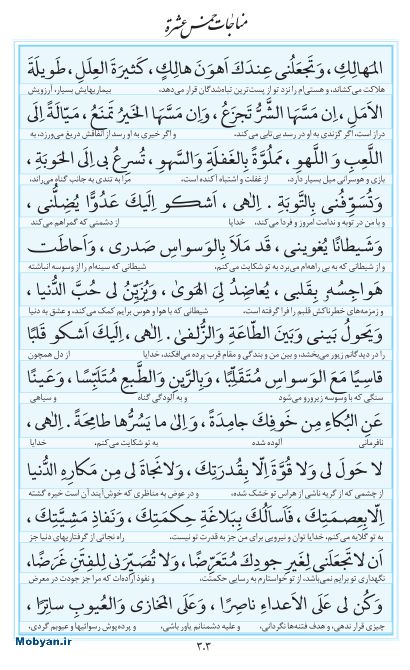 مناجات خمس عشرة
المَهالِكِ، وَتَجعَلُنی عِندَكَ اَهوَنَ هالِكٍ، كَثیرَةَ العِلَلِ، طَویلَةَ
هلاکت می‌کشاند، و هستی‌ام را نزد تو از پست‌ترین تباه‌شدگان قرار می‌دهد، بیماریهایش بسیار، آرزویش
الاَمَلِ، اِن مَسَّهَا الشَّرُّ تَجزَعُ، وَاِن مَسَّهَا الخَیرُ تَمنَعُ، مَیّالَةً اِلَی
دراز است، اگر گزندی به او در رسد بی‌تابی می‌کند، و اگر خیری به او رسد از انفاقش دریغ می‌ورزد، به
اللَّعِبِ وَ اللَّهوِ، مَملُوَّةً بِالغَفلَةِ وَالسَّهوِ، تُسرِعُ بی اِلَی الحَوبَةِ،
بازی و هوسرانی میل بسیار دارد، از غفلت و اشتباه آکنده است، مرا به تندی به جانب گناه می‌راند،
وَتُسَوِّفُنی بِالتَّوبَةِ. اِلهی، اَشكو اِلَیكَ عَدُوًّا یُضِلُّنی،
و با من در توبه و ندامت امروز و فردا می‌کند. خدایا از دشمنی که گمراهم می‌کند
وَ شَیطانًا یُغوینی، قَد مَلَاَ بِالوَسواسِ صَدری، وَ اَحاطَت
و از شیطانی که به بی راهه‌ام می‌برد به تو شکایت می‌کنم، شیطانی که سینه‌ام را از وسوسه انباشته
هَواجِسُهُ بِقَلبی، یُعاضِدُ لِیَ الهَویٰ، وَیُزَیِّنُ لی حُبَّ الدُّنیا،
و زمزمه‌های خطرناکش قلبم را فرا گرفته است، شیطانی که با هوا و هوس برایم کمک می‌کند، و عشق به دنیا
وَیَحولُ بَینی وَبَینَ الطّاعَةِ وَالزُّلفیٰ. اِلهی، اِلَیكَ اَشكو قَلبًا
را در دیدگانم زیور می‌بخشد، و بین من و بندگی و مقام قرب پرده می‌افکند، خدایا از دل همچون
قاسِیًا مَعَ الوَسواسِ مُتَقَلِّبًا، وَبِالرَّینِ وَالطَّبعِ مُتَلَبِّسًا، وَعَینًا
سنگی که با وسوسه زیرورو می‌شود و به آلودگی گناه و سیاهی
عَنِ البُكاءِ مِن خَوفِكَ جامِدَةً، وَاِلیٰ ما یَسُرُّها طامِحَةً. اِلهی،
نافرمانی آلوده شده به تو شکایت می‌کنم، خدایا
لا حَولَ لی وَلا قُوَّةَ اِلّا بِقُدرَتِكَ، وَلا نَجاةَ لی مِن مَكارِهِ الدُّنیا
از چشمی که از گریه ناشی از هراس تو خشک شده، و در عوض به مناظری که خوش‌آیند آن است خیره گشته
اِلّا بِعِصمَتِكَ، فَاَسأَلُكَ بِبَلاغَةِ حِكمَتِكَ، وَنَفاذِ مَشِیَّتِكَ،
به تو گلایه می‌کنم، خدایا توان و نیرویی برای من جز به قدرت تو نیست، راه نجاتی از گرفتاریهای دنیا جز
اَن لا تَجعَلَنی لِغَیرِ جودِكَ مُتَعَرِّضًا، وَلا تُصَیِّرَنی لِلفِتَنِ غَرَضًا،
نگهداری تو برایم نمی‌باشد، از تو خواستارم به رسایی حکمتت، و نفوذ اراده‌ات که مرا جز جودت در معرض
وَ كُن لی عَلَی الاَعداءِ ناصِرًا، وَعَلَی المَخازی وَالعُیوبِ ساتِرًا،
چیزی قرار ندهی، و هدف فتنه‌ها نگردانی، و علیه دشمنانم یاور باشی، و پرده‌پوش رسوائیها و عیوبم گردی.
۳۰۳
Mobyan.ir